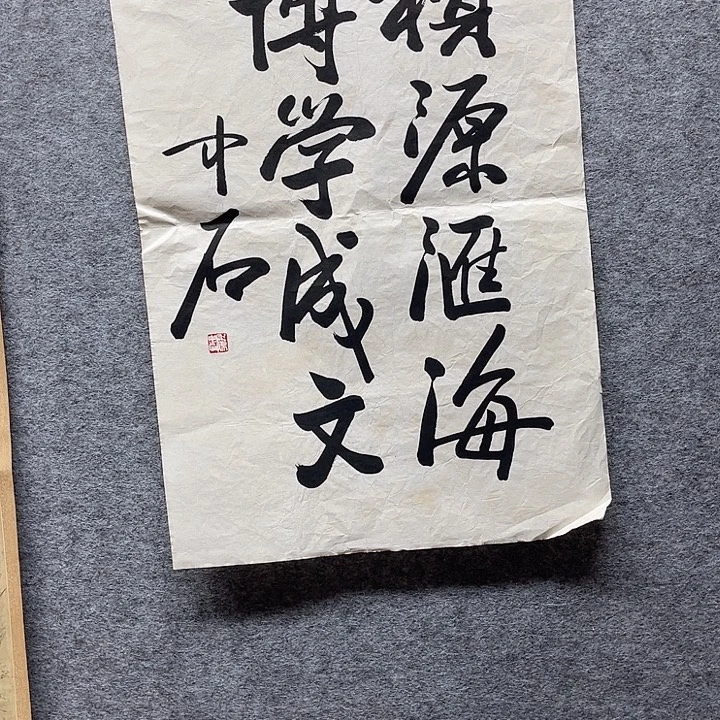 積源滙海
博学成文
中石